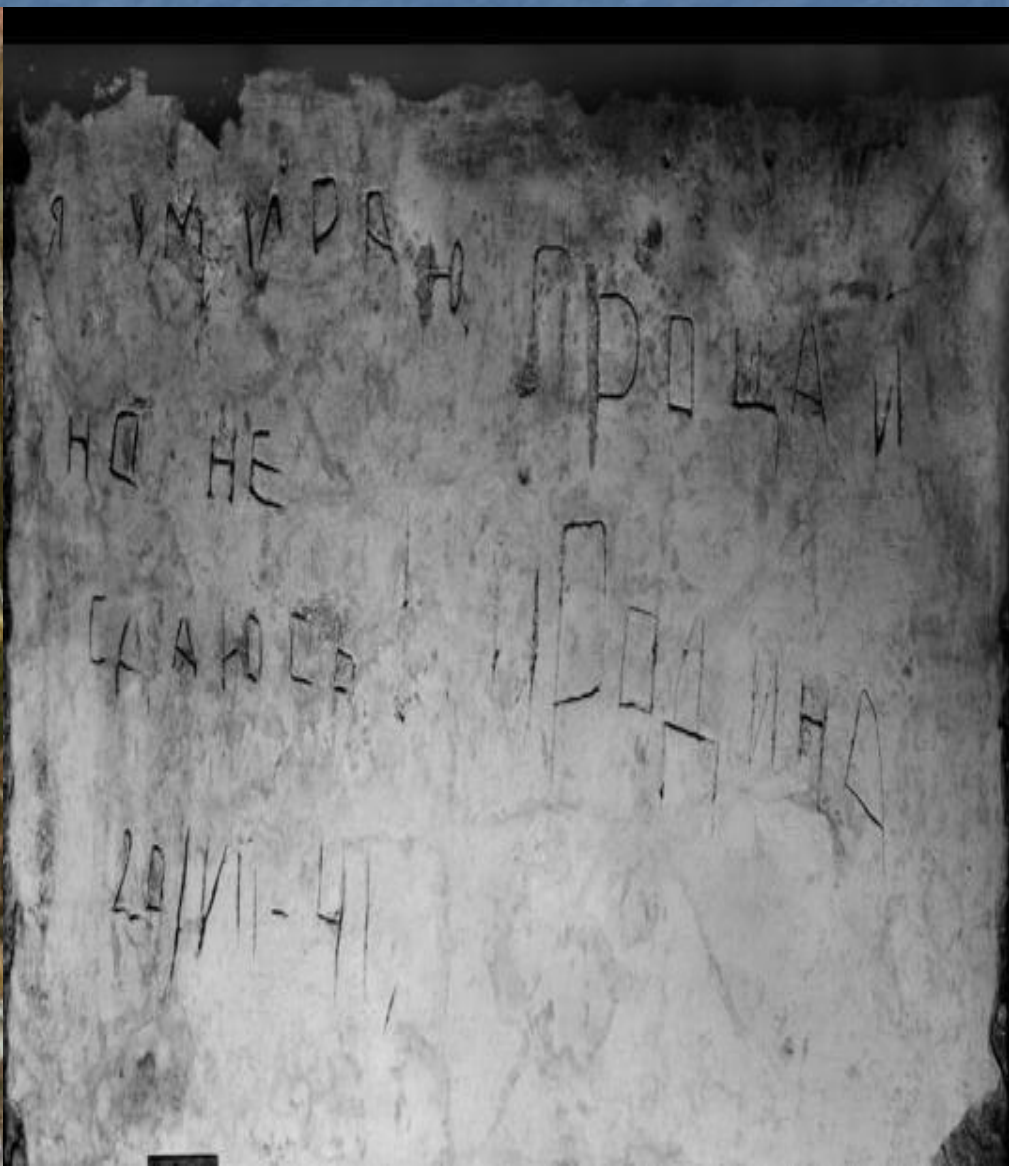 Я УМИРАЮ,
НО НЕ
СДАЮСЬ!
ПРОЩАЙ
РОДИНА
20/VII-41